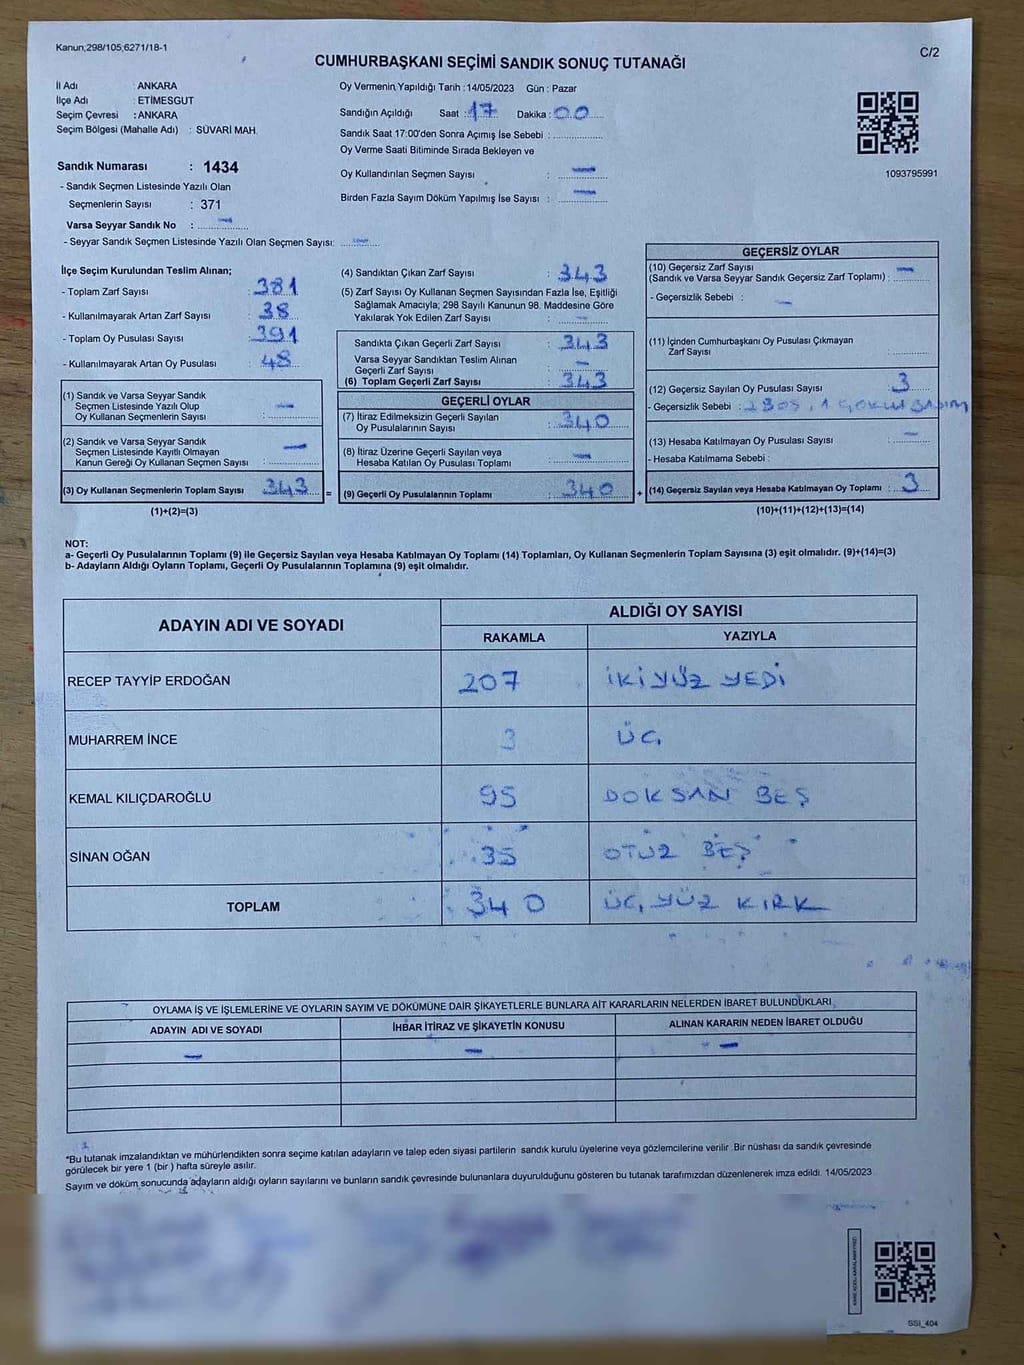 Kanun;298/105;6271/18-1
C/2
CUMHURBAŞKANI SEÇİMİ SANDIK SONUÇ TUTANAĞI
İl Adı : ANKARA
İlçe Adı : ETİMESGUT
Seçim Çevresi : ANKARA
Seçim Bölgesi (Mahalle Adı) : SÜVARİ MAH.
Sandık Numarası : 1434
- Sandık Seçmen Listesinde Yazılı Olan
Seçmenlerin Sayısı : 371
Varsa Seyyar Sandık No : —
- Seyyar Sandık Seçmen Listesinde Yazılı Olan Seçmen Sayısı: —
Oy Vermenin Yapıldığı Tarih : 14/05/2023 Gün : Pazar
Sandığın Açıldığı Saat : 17 Dakika : 00
Sandık Saat 17:00'den Sonra Açımış İse Sebebi :
Oy Verme Saati Bitiminde Sırada Bekleyen ve
Oy Kullandırılan Seçmen Sayısı : —
Birden Fazla Sayım Döküm Yapılmış İse Sayısı : —
1093795991
İlçe Seçim Kurulundan Teslim Alınan;
- Toplam Zarf Sayısı : 381
- Kullanılmayarak Artan Zarf Sayısı : 38
- Toplam Oy Pusulası Sayısı : 391
- Kullanılmayarak Artan Oy Pusulası : 48
(1) Sandık ve Varsa Seyyar Sandık
Seçmen Listesinde Yazılı Olup
Oy Kullanan Seçmenlerin Sayısı : —
(2) Sandık ve Varsa Seyyar Sandık
Seçmen Listesinde Kayıtlı Olmayan
Kanun Gereği Oy Kullanan Seçmen Sayısı : —
(3) Oy Kullanan Seçmenlerin Toplam Sayısı : 343
(1)+(2)=(3)
(4) Sandıktan Çıkan Zarf Sayısı : 343
(5) Zarf Sayısı Oy Kullanan Seçmen Sayısından Fazla İse, Eşitliği
Sağlamak Amacıyla; 298 Sayılı Kanunun 98. Maddesine Göre
Yakılarak Yok Edilen Zarf Sayısı : —
Sandıkta Çıkan Geçerli Zarf Sayısı : 343
Varsa Seyyar Sandıktan Teslim Alınan
Geçerli Zarf Sayısı : —
(6) Toplam Geçerli Zarf Sayısı : 343
GEÇERLİ OYLAR
(7) İtiraz Edilmeksizin Geçerli Sayılan
Oy Pusulalarının Sayısı : 340
(8) İtiraz Üzerine Geçerli Sayılan veya
Hesaba Katılan Oy Pusulası Toplamı : —
= (9) Geçerli Oy Pusulalarının Toplamı : 340 +
GEÇERSİZ OYLAR
(10) Geçersiz Zarf Sayısı
(Sandık ve Varsa Seyyar Sandık Geçersiz Zarf Toplamı) : —
- Geçersizlik Sebebi : —
(11) İçinden Cumhurbaşkanı Oy Pusulası Çıkmayan
Zarf Sayısı :
(12) Geçersiz Sayılan Oy Pusulası Sayısı : 3
- Geçersizlik Sebebi : 2 BOŞ, 1 ÇOKLU BASIM
(13) Hesaba Katılmayan Oy Pusulası Sayısı : —
- Hesaba Katılmama Sebebi :
(14) Geçersiz Sayılan veya Hesaba Katılmayan Oy Toplamı : 3
(10)+(11)+(12)+(13)=(14)
NOT:
a- Geçerli Oy Pusulalarının Toplamı (9) ile Geçersiz Sayılan veya Hesaba Katılmayan Oy Toplamı (14) Toplamları, Oy Kullanan Seçmenlerin Toplam Sayısına (3) eşit olmalıdır. (9)+(14)=(3)
b- Adayların Aldığı Oyların Toplamı, Geçerli Oy Pusulalarının Toplamına (9) eşit olmalıdır.
ADAYIN ADI VE SOYADI
ALDIĞI OY SAYISI
RAKAMLA YAZIYLA
RECEP TAYYİP ERDOĞAN 207 İKİ YÜZ YEDİ
MUHARREM İNCE 3 ÜÇ
KEMAL KILIÇDAROĞLU 95 DOKSAN BEŞ
SİNAN OĞAN 35 OTUZ BEŞ
TOPLAM 340 ÜÇ YÜZ KIRK
OYLAMA İŞ VE İŞLEMLERİNE VE OYLARIN SAYIM VE DÖKÜMÜNE DAİR ŞİKAYETLERLE BUNLARA AİT KARARLARIN NELERDEN İBARET BULUNDUKLARI
ADAYIN ADI VE SOYADI İHBAR İTİRAZ VE ŞİKAYETİN KONUSU ALINAN KARARIN NEDEN İBARET OLDUĞU
— — —
*Bu tutanak imzalandıktan ve mühürlendikten sonra seçime katılan adayların ve talep eden siyasi partilerin sandık kurulu üyelerine veya gözlemcilerine verilir. Bir nüshası da sandık çevresinde
görülecek bir yere 1 (bir ) hafta süreyle asılır.
Sayım ve döküm sonucunda adayların aldığı oyların sayılarını ve bunların sandık çevresinde bulunanlara duyurulduğunu gösteren bu tutanak tarafımızdan düzenlenerek imza edildi. 14/05/2023
SSİ_404